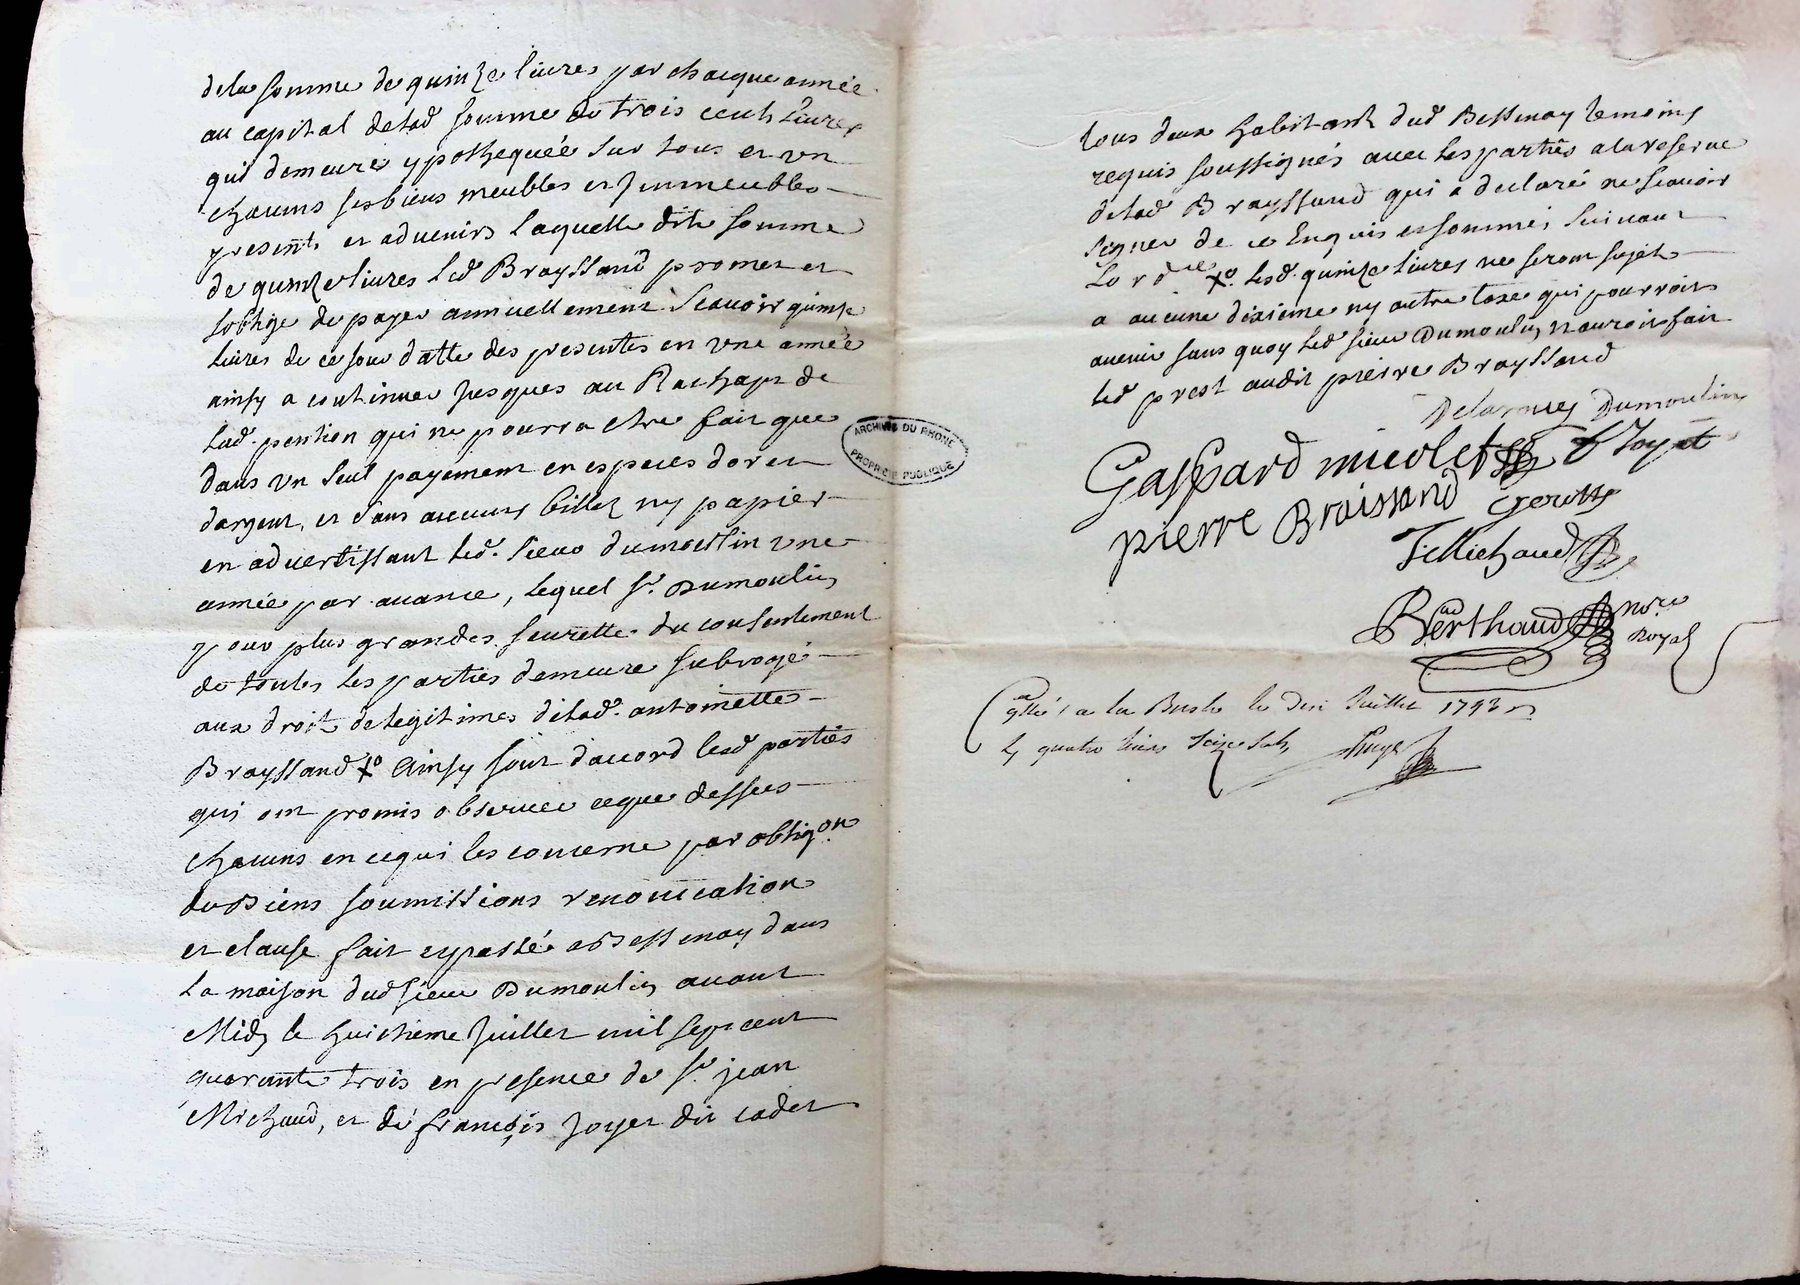 dela somme de quinze livres par chacque année
au capital delad somme de trois cents Livres
qui demeure ypothequéé sur tous et un
chacuns ses biens meubles et Jmmeubles
presents et advenirs laquelle dite somme
de quinze livres led Brayssand promet et
soblige de payer annuellement Scavoir quinze
livres de ce jour datte des presentes en une année
ainsy a continuer jusques au Rachapt de
lad. pention qui ne pourra etre fait que
dans un seul payement en especes dor et
dargent, et sans aucuns billets ny papier
en advertissant led. sieur dumoulin une
année par avance, lequel sr. Dumoulin
pour plus grandes seurette du consentement
de toutes les parties demeure subrogé
aux droits de legitimes delad. antoinette
Brayssand xo Ainsy sont daccord lesd parties
qui ont promis observer ceque dessus
chacuns en cequi les concerne par obligon.
de Biens soumissions renonciation
et clause fait et passé a Bessenay dans
La maison dud sieur Dumoulin avant
Midy le huictieme Juillet mil sept cent
quarante trois en presence de sr. jean
Michaud, et de françois Joyet dit cadet
ARCHIVES DU RHONE
PROPRIÉTÉ PUBLIQUE
tous deux habitants dud Bessenay temoins
requis soussignés avec les parties a la reserve
delad Brayssand qui a declaré ne scavoir
signer de ce Enquis et sommés suivant
Lord.ce xo. lesd. quinze livres ne seront sujets
a aucune dixieme ny autre taxe qui pourroit
avenir sans quoy led sieur Dumoulin nauroit fait
led prest audit pierre Brayssand
Dumoulin
Gaspard nicolet f Joyet
pierre Braissand
J: Michaud
Berthaud nore
Royal
a la Bresle le dix Juillet 1743
quatre livres seize sols